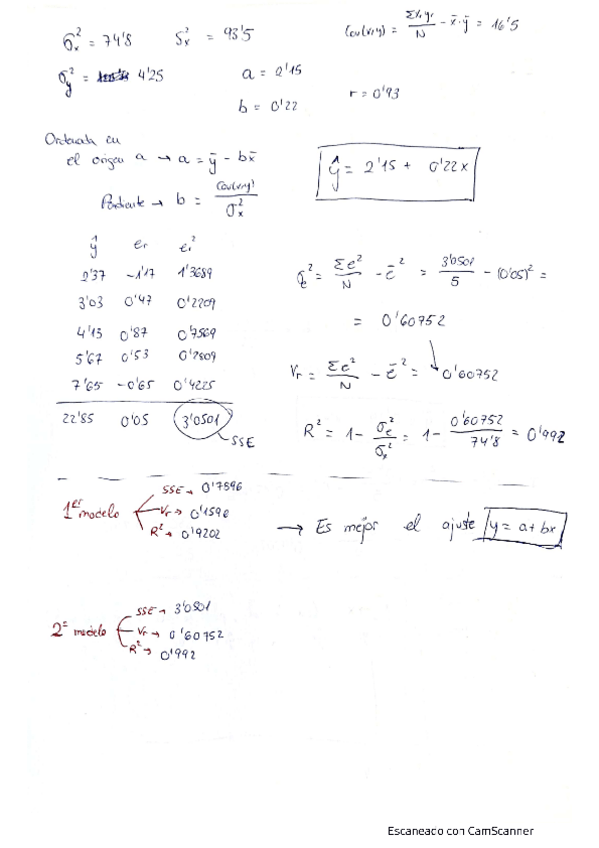 σx² = 74'8 Sx² = 93'5 Cov(x,y) = Σxi yi / N - x̄·ȳ = 16'5
σy² = 4'25 a = 2'15 r = 0'93
b = 0'22
Ordenada en
el origen a → a = ȳ - bx̄
ŷ = 2'15 + 0'22x
Pendiente → b = Cov(x,y) / σx²
ŷ er er²
2'37 -1'17 1'3689
3'03 0'47 0'2209
4'13 0'87 0'7569
5'67 0'53 0'2809
7'65 -0'65 0'4225
22'85 0'05 3'0501
SSE
σe² = Σe² / N - ē² = 3'0501 / 5 - (0'05)² =
= 0'60752
Vr = Σe² / N - ē² = 0'60752
R² = 1 - σe² / σx² = 1 - 0'60752 / 74'8 = 0'992
1er modelo
SSE → 0'7896
Vr → 0'1596
R² → 0'9202
→ Es mejor el ajuste y = a + bx
2º modelo
SSE → 3'0501
Vr → 0'60752
R² → 0'992
Escaneado con CamScanner